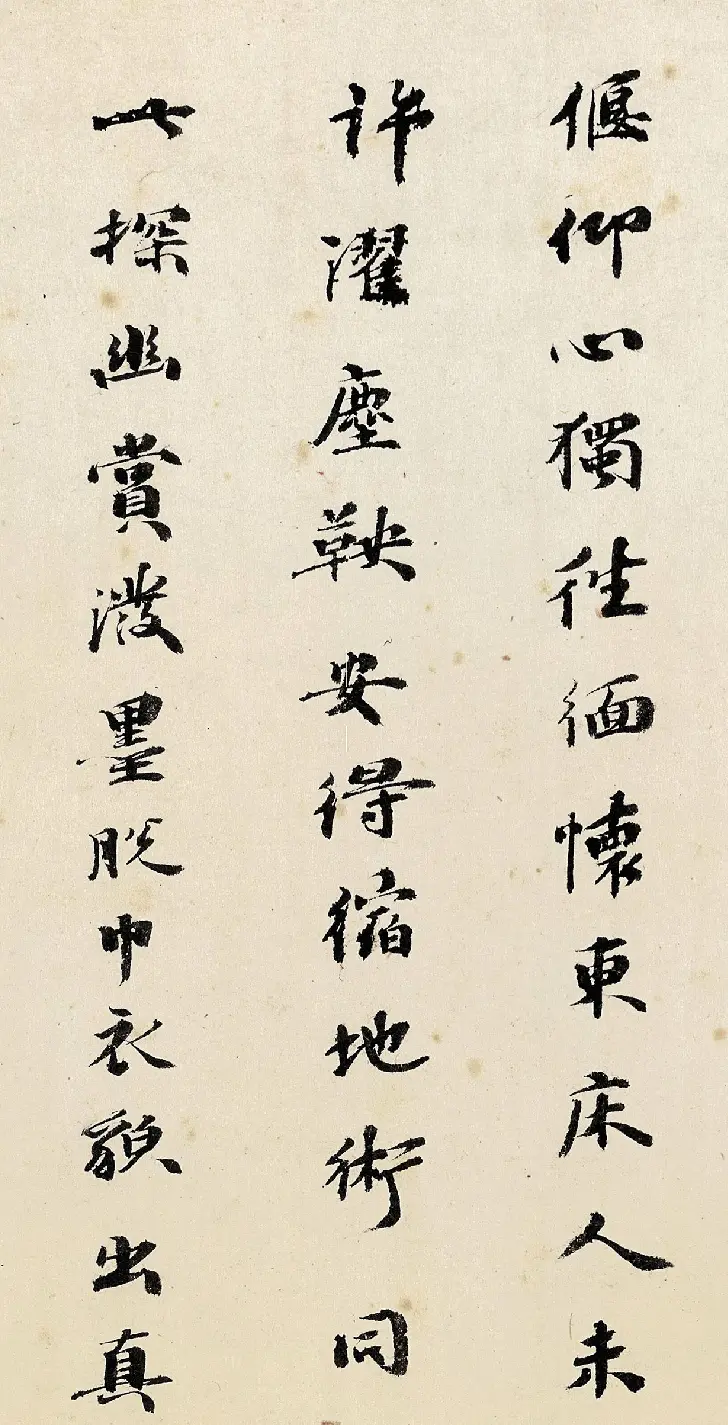 偃仰心獨徃緬懷東床人未
許濯塵鞅安得縮地術同
此探幽賞潑墨脫巾衣䫉出真